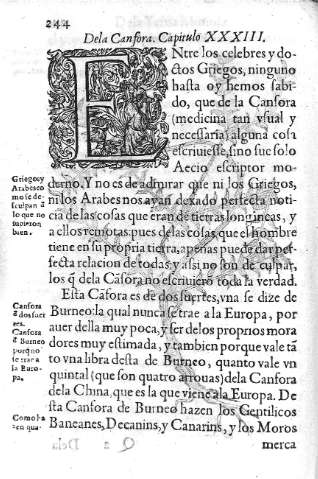 244
Dela Canfora. Capitulo XXXIII.
ENtre los celebres y do-
ctos Griegos, ninguno
hasta oy hemos sabi-
do, que de la Canfora
(medicina tan vsual y
necessaria) alguna cosa
escriuiesse, sino fue solo
Aecio escriptor mo-
derno. Y no es de admirar que ni los Griegos,
ni los Arabes nos ayan dexado perfecta noti-
cia de las cosas que eran de tierras longincas, y
a ellos remotas, pues de las cosas, que el hombre
tiene en su propria tierra, apenas puede dar per-
fecta relacion de todas, y assi no son de culpar,
los q̃ dela Cãfora no escriuierõ toda la verdad.
Esta Cãfora es de dos suertes, vna se dize de
Burneo: la qual nunca se trae a la Europa, por
auer della muy poca, y ser delos proprios mora
dores muy estimada, y tambien porque vale tã
to vna libra desta de Burneo, quanto vale vn
quintal (que son quatro arrouas) dela Canfora
dela China, que es la que viene ala Europa. De
sta Canfora de Burneo hazen los Gentilicos
Baneanes, Decanins, y Canarins, y los Moros
merca
Griegos y
Arabes co
mo se dis
culpan ã
lo que no
bien.
Canfora
ẽ dos suer
tes.
Canfora
ẽ Burneo
porq̃ no
se trae a
la Euro-
pa.
Como ha